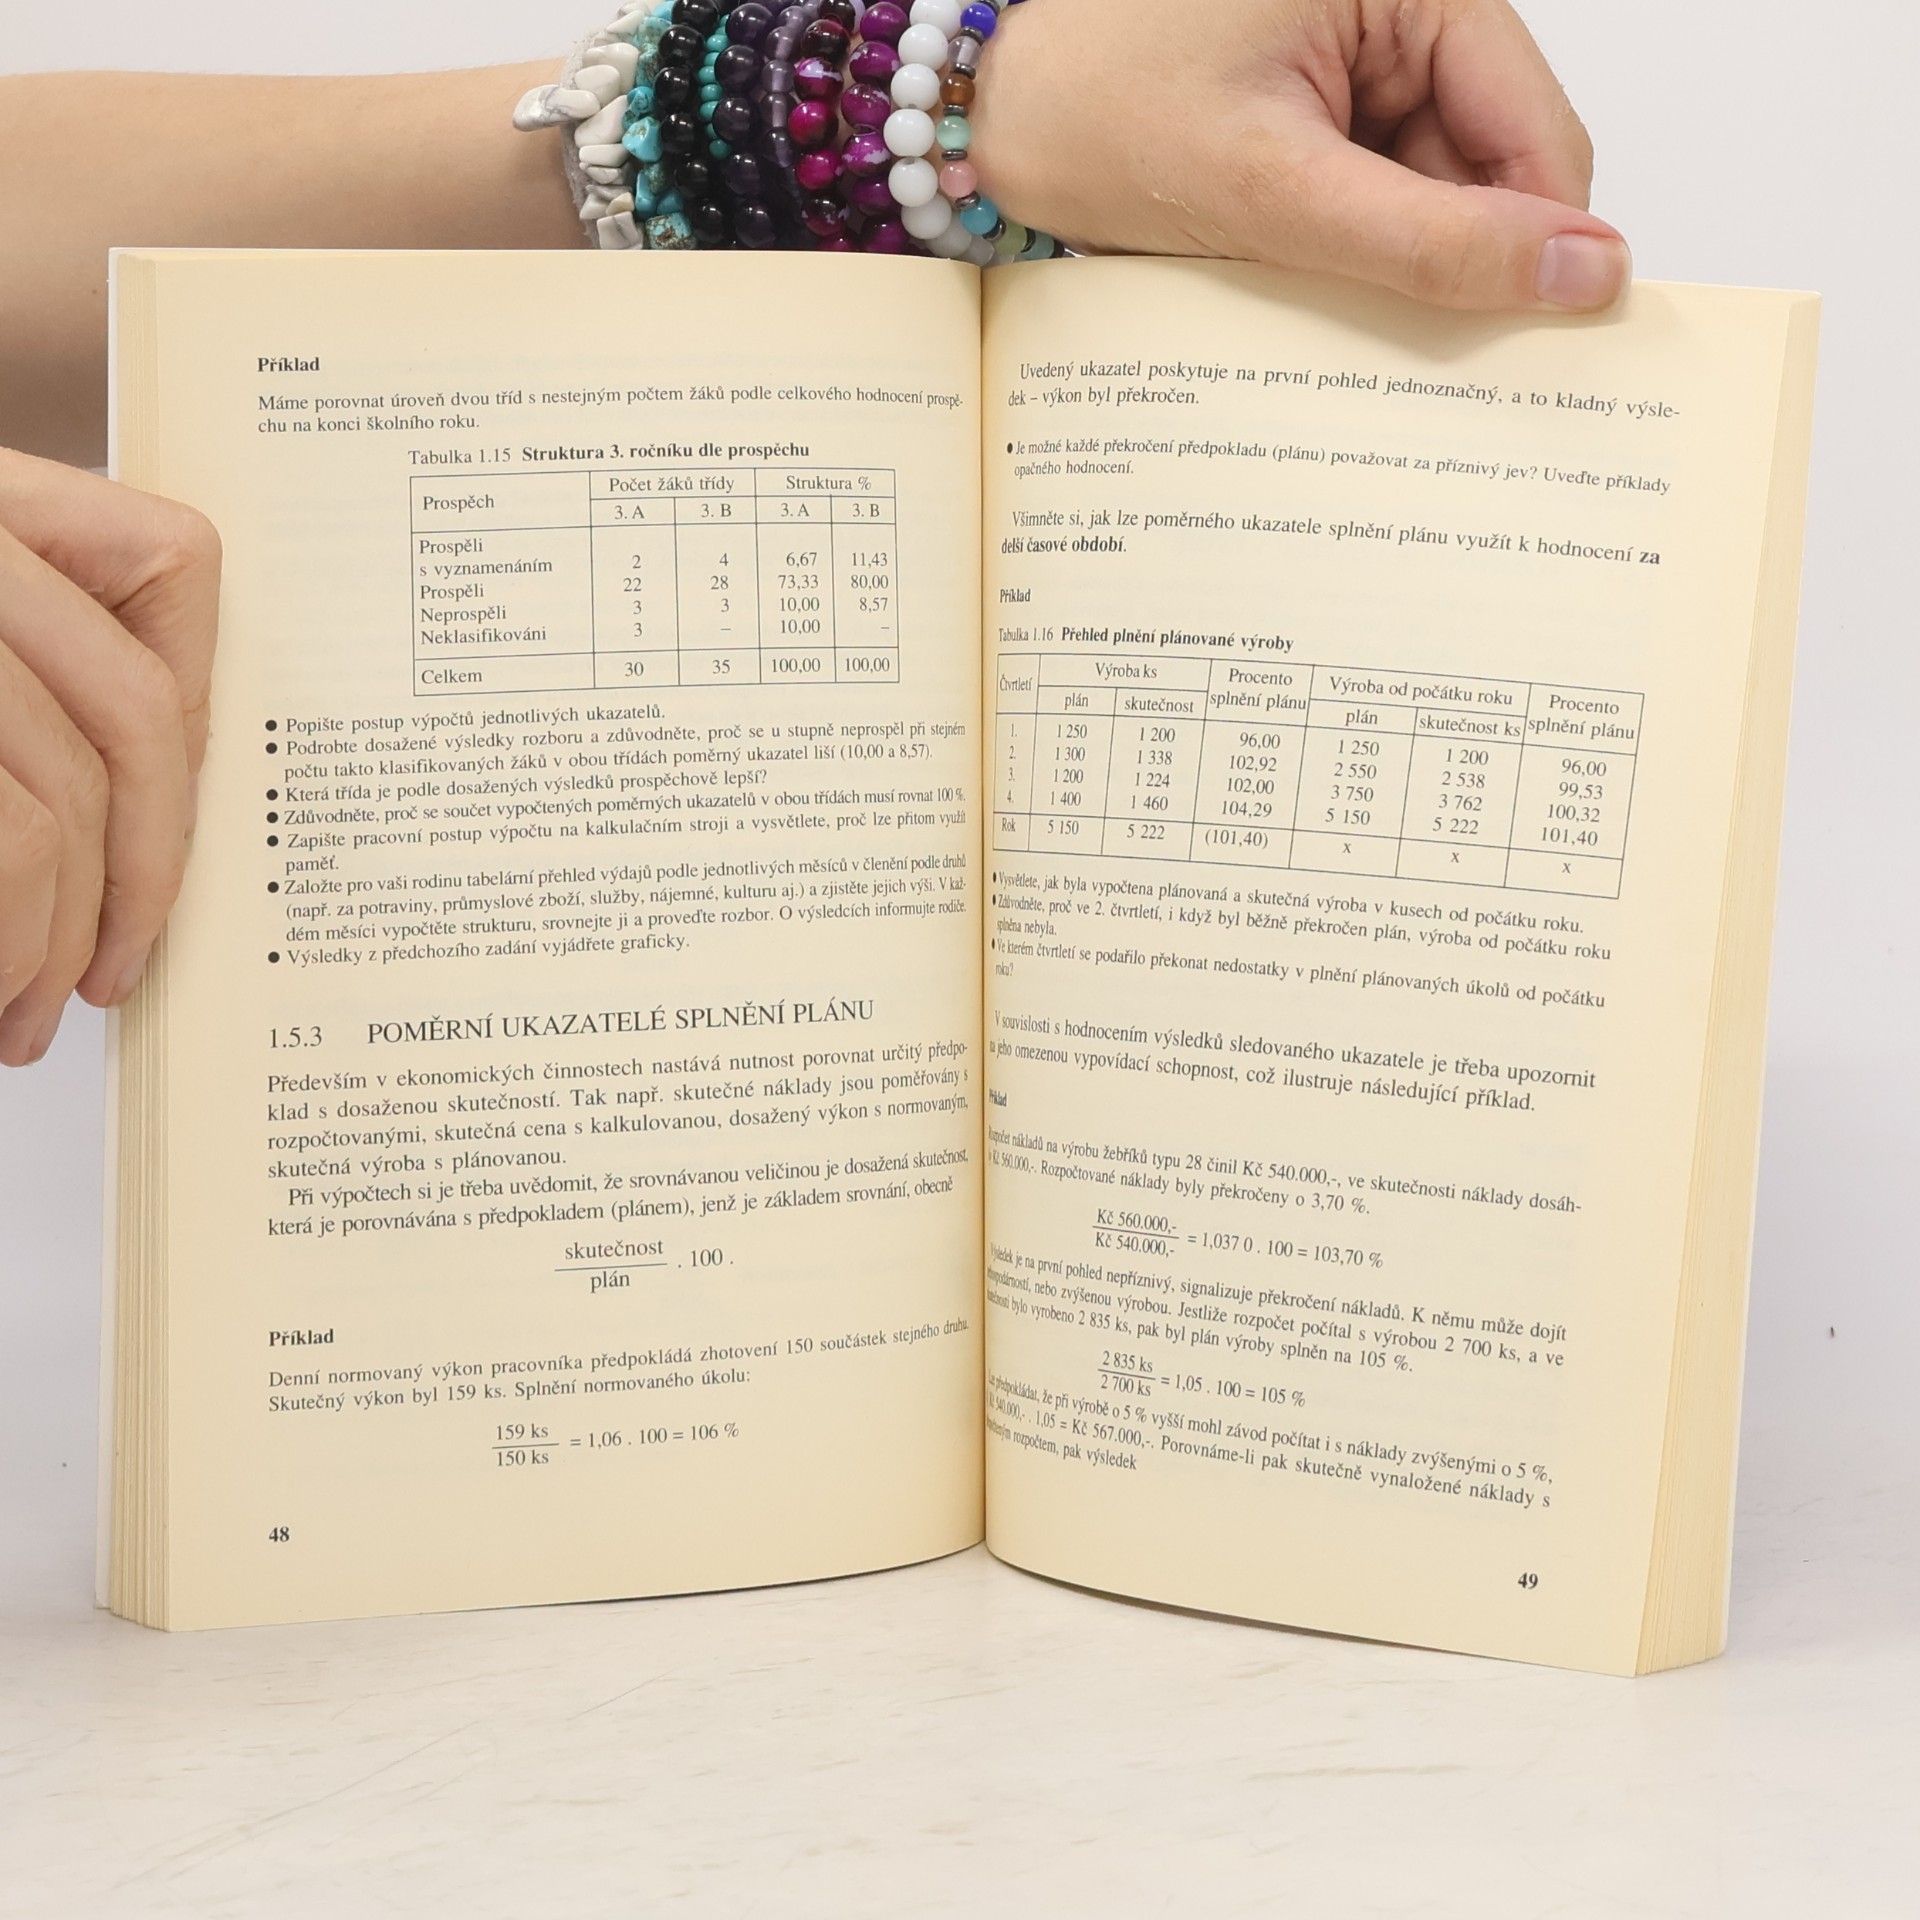 Příklad
Máme porovnat úroveň dvou tříd s nestejným počtem žáků podle celkového hodnocení prospě-
chu na konci školního roku.
Tabulka 1.15 Struktura 3. ročníku dle prospěchu
Prospěch Počet žáků třídy Struktura %
3. A 3. B 3. A 3. B
Prospěli
s vyznamenáním 2 4 6,67 11,43
Prospěli 22 28 73,33 80,00
Neprospěli 3 3 10,00 8,57
Neklasifikováni 3 – 10,00 –
Celkem 30 35 100,00 100,00
● Popište postup výpočtů jednotlivých ukazatelů.
● Podrobte dosažené výsledky rozboru a zdůvodněte, proč se u stupně neprospěl při stejném
počtu takto klasifikovaných žáků v obou třídách poměrný ukazatel liší (10,00 a 8,57).
● Která třída je podle dosažených výsledků prospěchově lepší?
● Zdůvodněte, proč se součet vypočtených poměrných ukazatelů v obou třídách musí rovnat 100 %.
● Zapište pracovní postup výpočtu na kalkulačním stroji a vysvětlete, proč lze přitom využít
paměť.
● Založte pro vaši rodinu tabelární přehled výdajů podle jednotlivých měsíců v členění podle druhů
(např. za potraviny, průmyslové zboží, služby, nájemné, kulturu aj.) a zjistěte jejich výši. V kaž-
dém měsíci vypočtěte strukturu, srovnejte ji a proveďte rozbor. O výsledcích informujte rodiče.
● Výsledky z předchozího zadání vyjádřete graficky.
1.5.3 POMĚRNÍ UKAZATELÉ SPLNĚNÍ PLÁNU
Především v ekonomických činnostech nastává nutnost porovnat určitý předpo-
klad s dosaženou skutečností. Tak např. skutečné náklady jsou poměřovány s
rozpočtovanými, skutečná cena s kalkulovanou, dosažený výkon s normovaným,
skutečná výroba s plánovanou.
Při výpočtech si je třeba uvědomit, že srovnávanou veličinou je dosažená skutečnost,
která je porovnávána s předpokladem (plánem), jenž je základem srovnání, obecně
skutečnost
. 100 .
plán
Příklad
Denní normovaný výkon pracovníka předpokládá zhotovení 150 součástek stejného druhu.
Skutečný výkon byl 159 ks. Splnění normovaného úkolu:
159 ks
= 1,06 . 100 = 106 %
150 ks
48
Uvedený ukazatel poskytuje na první pohled jednoznačný, a to kladný výsle-
dek – výkon byl překročen.
● Je možné každé překročení předpokladu (plánu) považovat za příznivý jev? Uveďte příklady
opačného hodnocení.
Všimněte si, jak lze poměrného ukazatele splnění plánu využít k hodnocení za
delší časové období.
Příklad
Tabulka 1.16 Přehled plnění plánované výroby
Čtvrtletí Výroba ks Procento splnění plánu Výroba od počátku roku Procento splnění plánu
plán skutečnost plán skutečnost ks
1. 1 250 1 200 96,00 1 250 1 200 96,00
2. 1 300 1 338 102,92 2 550 2 538 99,53
3. 1 200 1 224 102,00 3 750 3 762 100,32
4. 1 400 1 460 104,29 5 150 5 222 101,40
Rok 5 150 5 222 (101,40) x x x
● Vysvětlete, jak byla vypočtena plánovaná a skutečná výroba v kusech od počátku roku.
● Zdůvodněte, proč ve 2. čtvrtletí, i když byl běžně překročen plán, výroba od počátku roku
splněna nebyla.
● Ve kterém čtvrtletí se podařilo překonat nedostatky v plnění plánovaných úkolů od počátku
roku?
V souvislosti s hodnocením výsledků sledovaného ukazatele je třeba upozornit
na jeho omezenou vypovídací schopnost, což ilustruje následující příklad.
Příklad
Rozpočet nákladů na výrobu žebříků typu 28 činil Kč 540.000,-, ve skutečnosti náklady dosáh-
Kč 560.000,-. Rozpočtované náklady byly překročeny o 3,70 %.
Kč 560.000,-
= 1,037 0 . 100 = 103,70 %
Kč 540.000,-
Výsledek je na první pohled nepříznivý, signalizuje překročení nákladů. K němu může dojít
nebo zvýšenou výrobou. Jestliže rozpočet počítal s výrobou 2 700 ks, a ve
skutečnosti bylo vyrobeno 2 835 ks, pak byl plán výroby splněn na 105 %.
2 835 ks
= 1,05 . 100 = 105 %
2 700 ks
předpokládat, že při výrobě o 5 % vyšší mohl závod počítat i s náklady zvýšenými o 5 %,
Kč 540.000,- . 1,05 = Kč 567.000,-. Porovnáme-li pak skutečně vynaložené náklady s
rozpočtem, pak výsledek
49